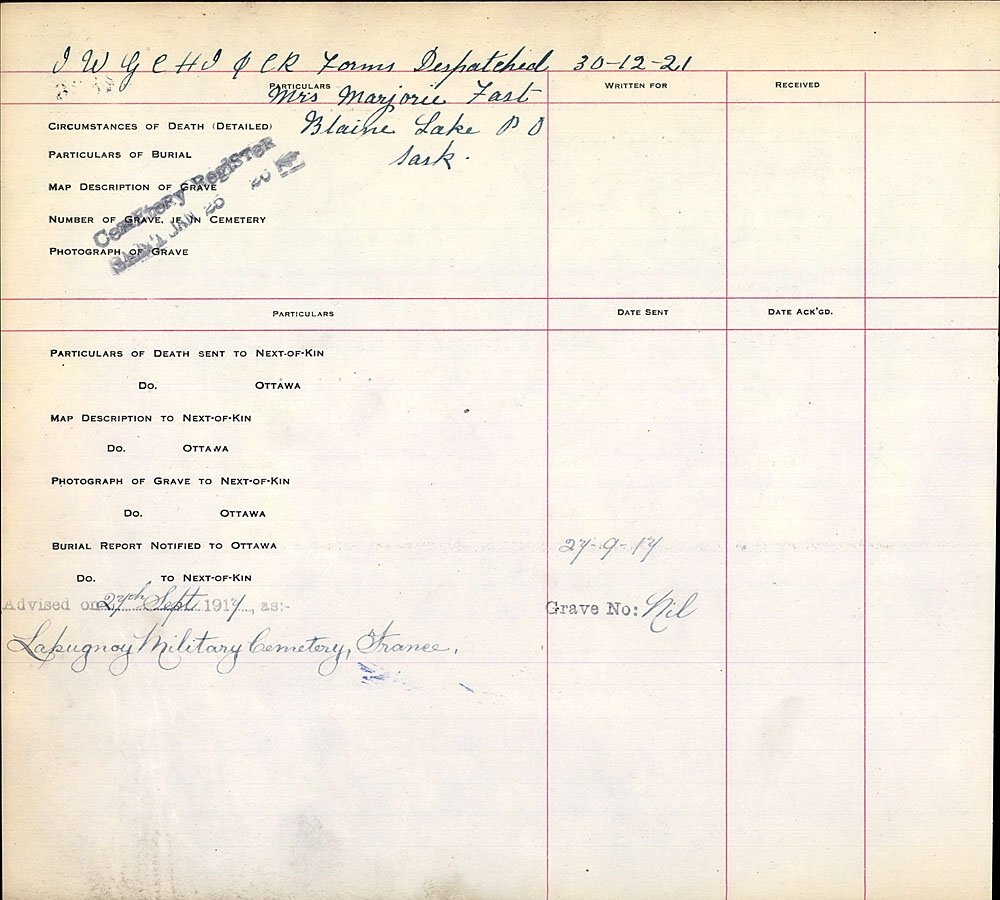 I W G C H I & CR Forms Despatched 30-12-21
PARTICULARS WRITTEN FOR RECEIVED
Mrs Marjorie Fast
CIRCUMSTANCES OF DEATH (DETAILED) Blaine Lake P O
PARTICULARS OF BURIAL Sask.
MAP DESCRIPTION OF GRAVE
NUMBER OF GRAVE, IF IN CEMETERY
PHOTOGRAPH OF GRAVE
CEMETERY REGISTER
SENT JAN 25
PARTICULARS DATE SENT DATE ACK'GD.
PARTICULARS OF DEATH SENT TO NEXT-OF-KIN
DO. OTTAWA
MAP DESCRIPTION TO NEXT-OF-KIN
DO. OTTAWA
PHOTOGRAPH OF GRAVE TO NEXT-OF-KIN
DO. OTTAWA
BURIAL REPORT NOTIFIED TO OTTAWA 27-9-17
DO. TO NEXT-OF-KIN
Advised on 27th Sept 1917, as:- Grave No: Nil
Lapugnoy Military Cemetery, France.